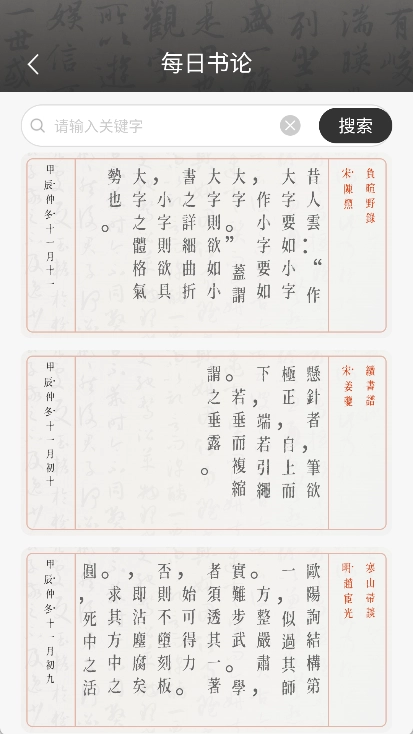 每日书论
请输入关键字
搜索
負暄野錄
宋·陳槱
昔人雲：“作
大字要如小字
，作小字要如
大字。”蓋謂
大字則欲如小
書之詳細曲折
，小字則欲具
大字之體格氣
勢也。
甲辰·仲冬·十一月十一
續書譜
宋·姜夔
懸針者，筆欲
極正，自上而
下，端若引繩
。若垂而複縮
謂之垂露。
甲辰·仲冬·十一月初十
寒山帚談
明·趙宧光
歐陽詢結構第
一，似過其師
。方整嚴肅，
實難步武。學
者須透其一著
，始可得力。
否則不墮刻板
，即沾塵腐矣
。求其方中之
圓，死中之活
甲辰·仲冬·十一月初九